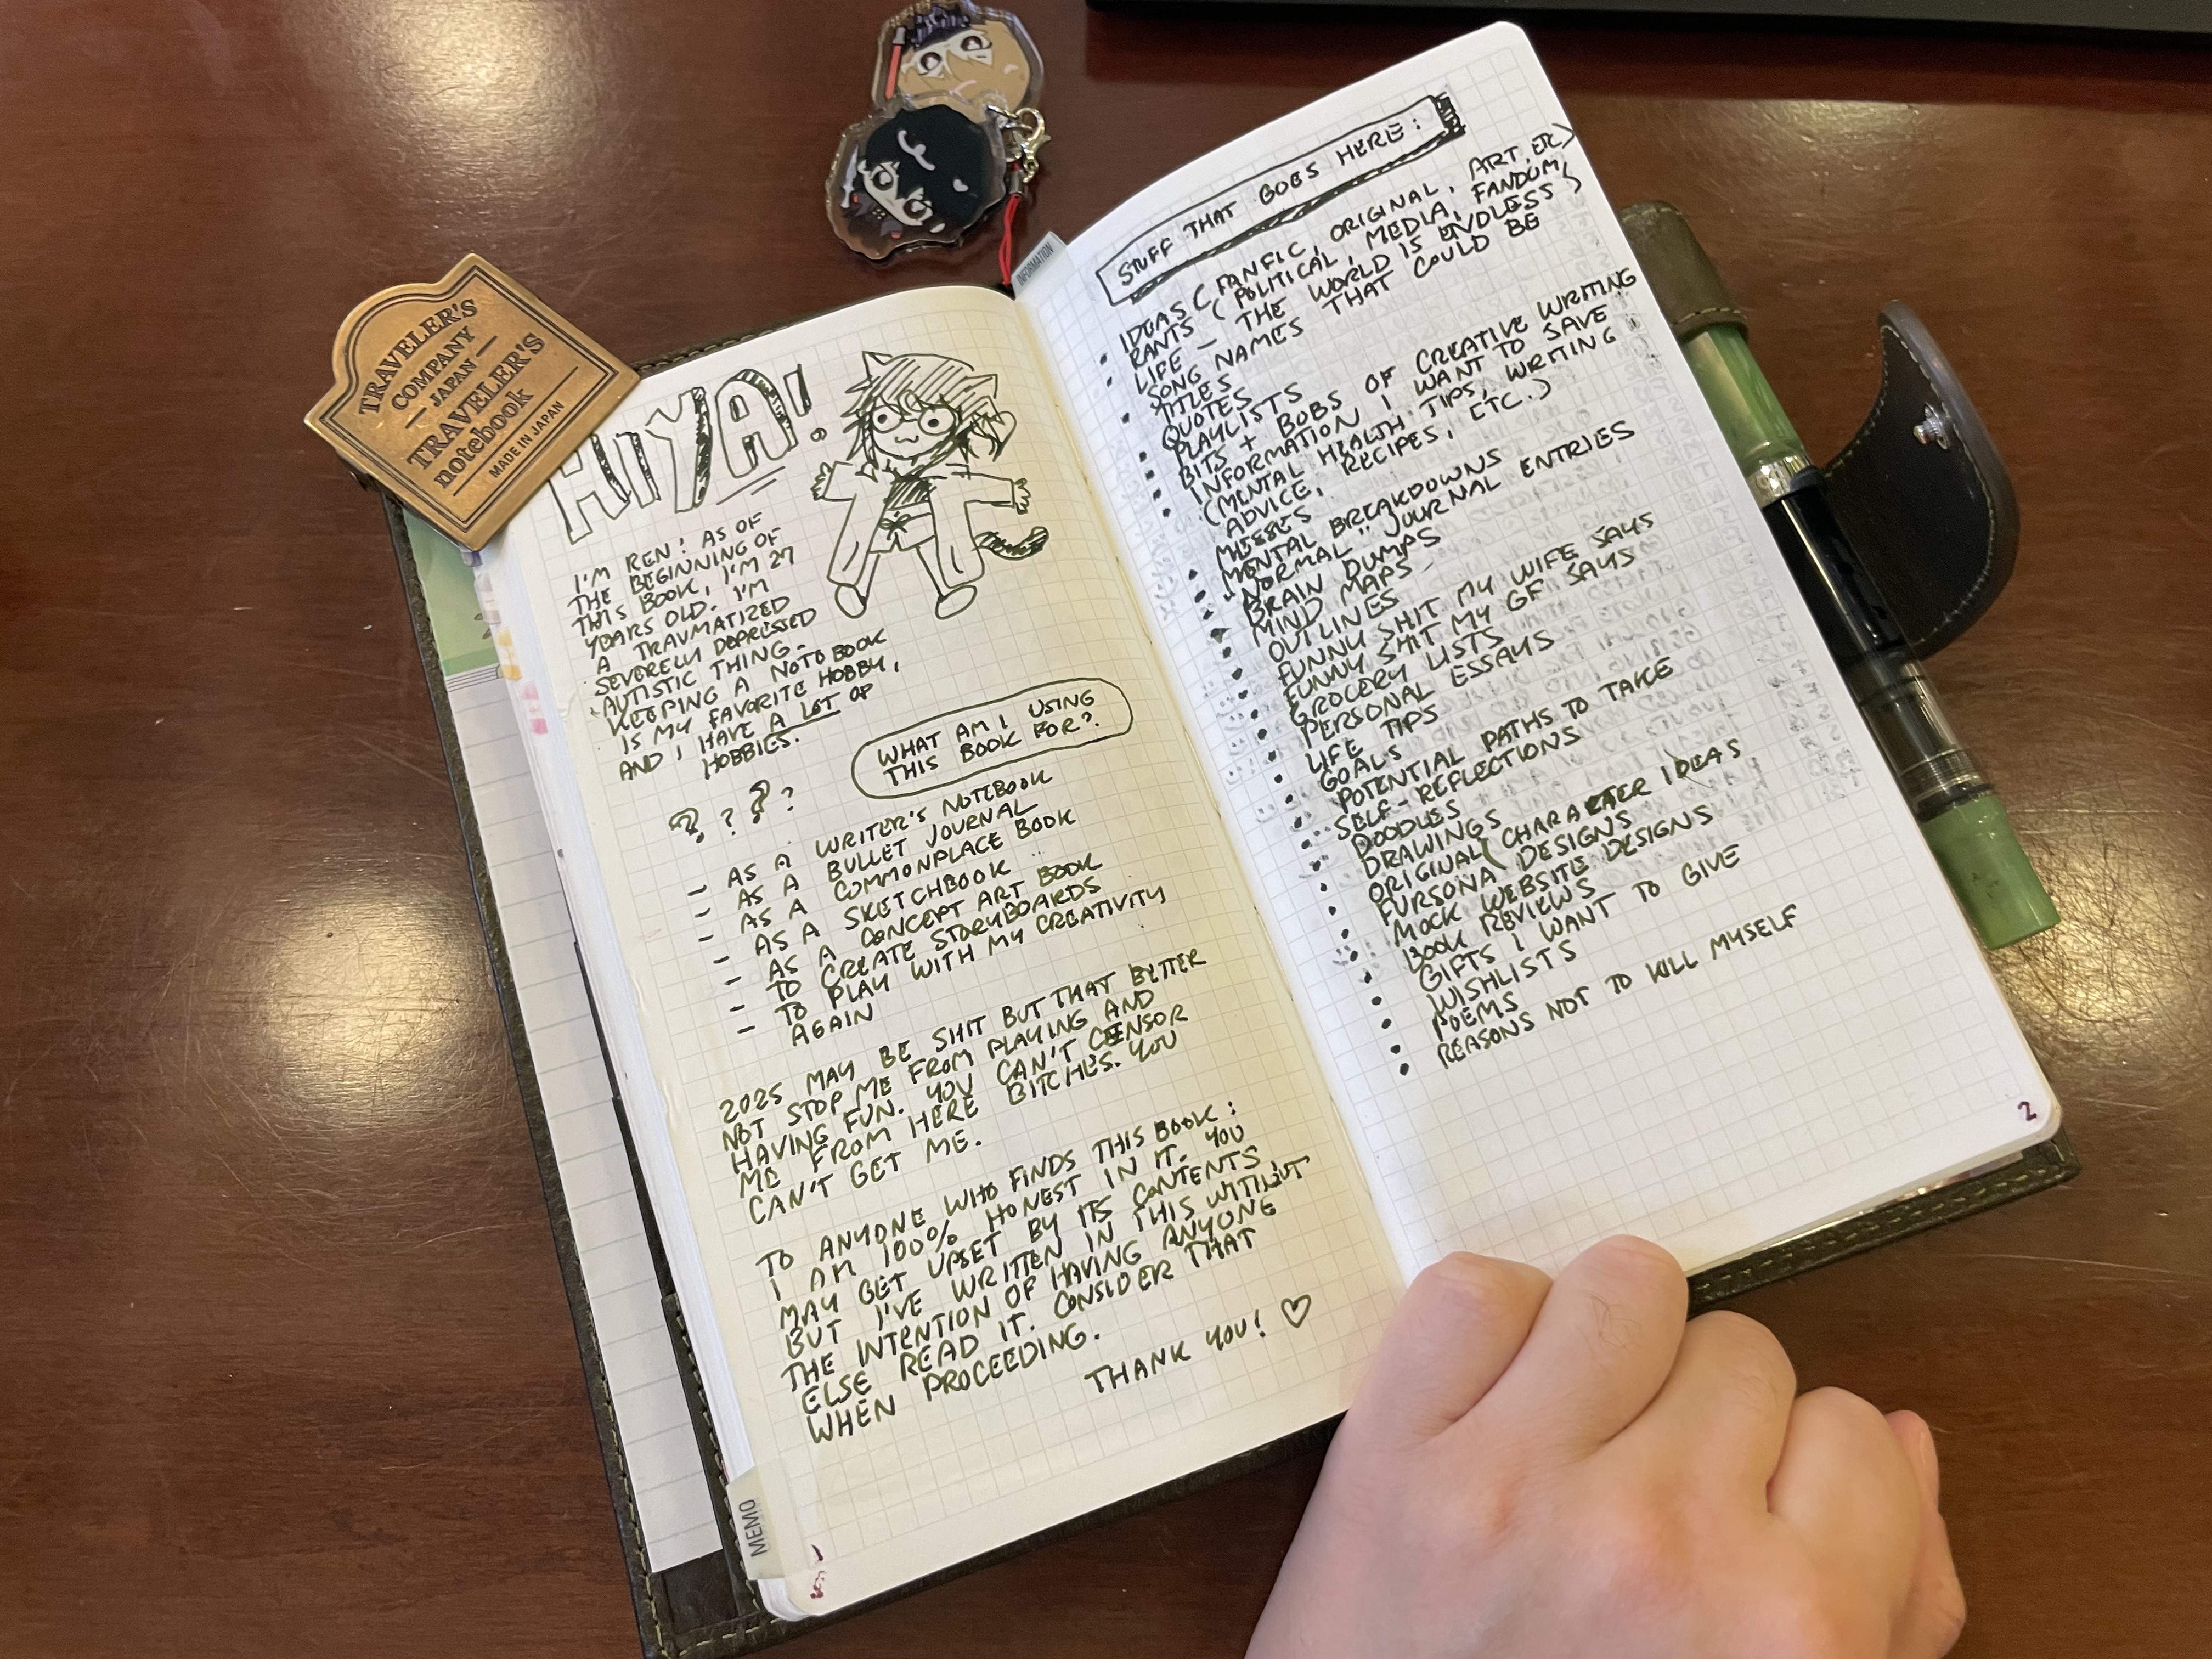 TRAVELER'S
COMPANY
— JAPAN —
TRAVELER'S
notebook
MADE IN JAPAN
HIYA!
I'M REN! AS OF
THE BEGINNING OF
THIS BOOK, I'M 27
YEARS OLD. I'M
A TRAUMATIZED
SEVERELY DEPRESSED
AUTISTIC THING.
KEEPING A NOTEBOOK
IS MY FAVORITE HOBBY,
AND I HAVE A LOT OF
HOBBIES.
? ? ? ?
WHAT AM I USING
THIS BOOK FOR?
– AS A WRITER'S NOTEBOOK
– AS A BULLET JOURNAL
– AS A COMMONPLACE BOOK
– AS A SKETCHBOOK
– AS A CONCEPT ART BOOK
– TO CREATE STORYBOARDS
– TO PLAY WITH MY CREATIVITY
AGAIN
2025 MAY BE SHIT BUT THAT BETTER
NOT STOP ME FROM PLAYING AND
HAVING FUN. YOU CAN'T CENSOR
ME FROM HERE BITCHES. YOU
CAN'T GET ME.
TO ANYONE WHO FINDS THIS BOOK:
I AM 100% HONEST IN IT. YOU
MAY GET UPSET BY ITS CONTENTS,
BUT I'VE WRITTEN IN THIS WITHOUT
THE INTENTION OF HAVING ANYONE
ELSE READ IT. CONSIDER THAT
WHEN PROCEEDING.
THANK YOU! ♡
MEMO
1
INFORMATION
STUFF THAT GOES HERE:
• IDEAS (FANFIC, ORIGINAL, ART, ETC)
• RANTS (POLITICAL, MEDIA, FANDOM,
LIFE – THE WORLD IS ENDLESS)
• SONG NAMES THAT COULD BE
TITLES
• QUOTES
• PLAYLISTS
• BITS + BOBS OF CREATIVE WRITING
• INFORMATION I WANT TO SAVE
(MENTAL HEALTH TIPS, WRITING
ADVICE, RECIPES, ETC.)
• MESSES
• MENTAL BREAKDOWNS
• "NORMAL" JOURNAL ENTRIES
• BRAIN DUMPS
• MIND MAPS
• OUTLINES
• FUNNY SHIT MY WIFE SAYS
• FUNNY SHIT MY GF SAYS
• GROCERY LISTS
• PERSONAL ESSAYS
• LIFE TIPS
• GOALS
• POTENTIAL PATHS TO TAKE
• SELF-REFLECTIONS
• DOODLES
• DRAWINGS
• ORIGINAL CHARACTER IDEAS
• FURSONA DESIGNS
• MOCK WEBSITE DESIGNS
• BOOK REVIEWS
• GIFTS I WANT TO GIVE
• WISHLISTS
• POEMS
• REASONS NOT TO KILL MYSELF
2